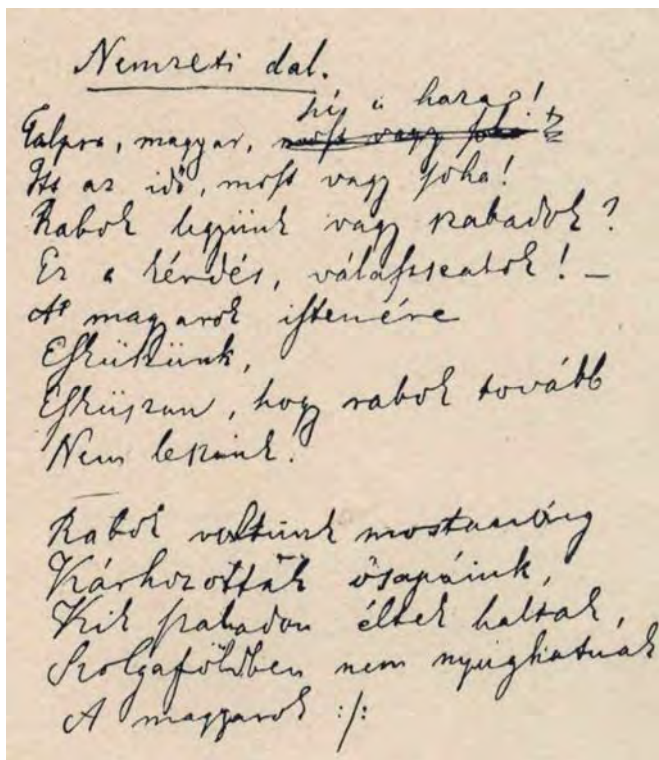 Nemzeti dal.
hí a haza!
Talpra, magyar, most vagy soha
Itt az idő, most vagy soha!
Rabok legyünk vagy szabadok?
Ez a kérdés, válasszatok! –
A magyarok istenére
Esküszünk,
Esküszünk, hogy rabok tovább
Nem leszünk!
Rabok voltunk mostanáig
Kárhozottak ősapáink,
Kik szabadon éltek haltak,
Szolgaföldben nem nyughatnak
A magyarok :/: